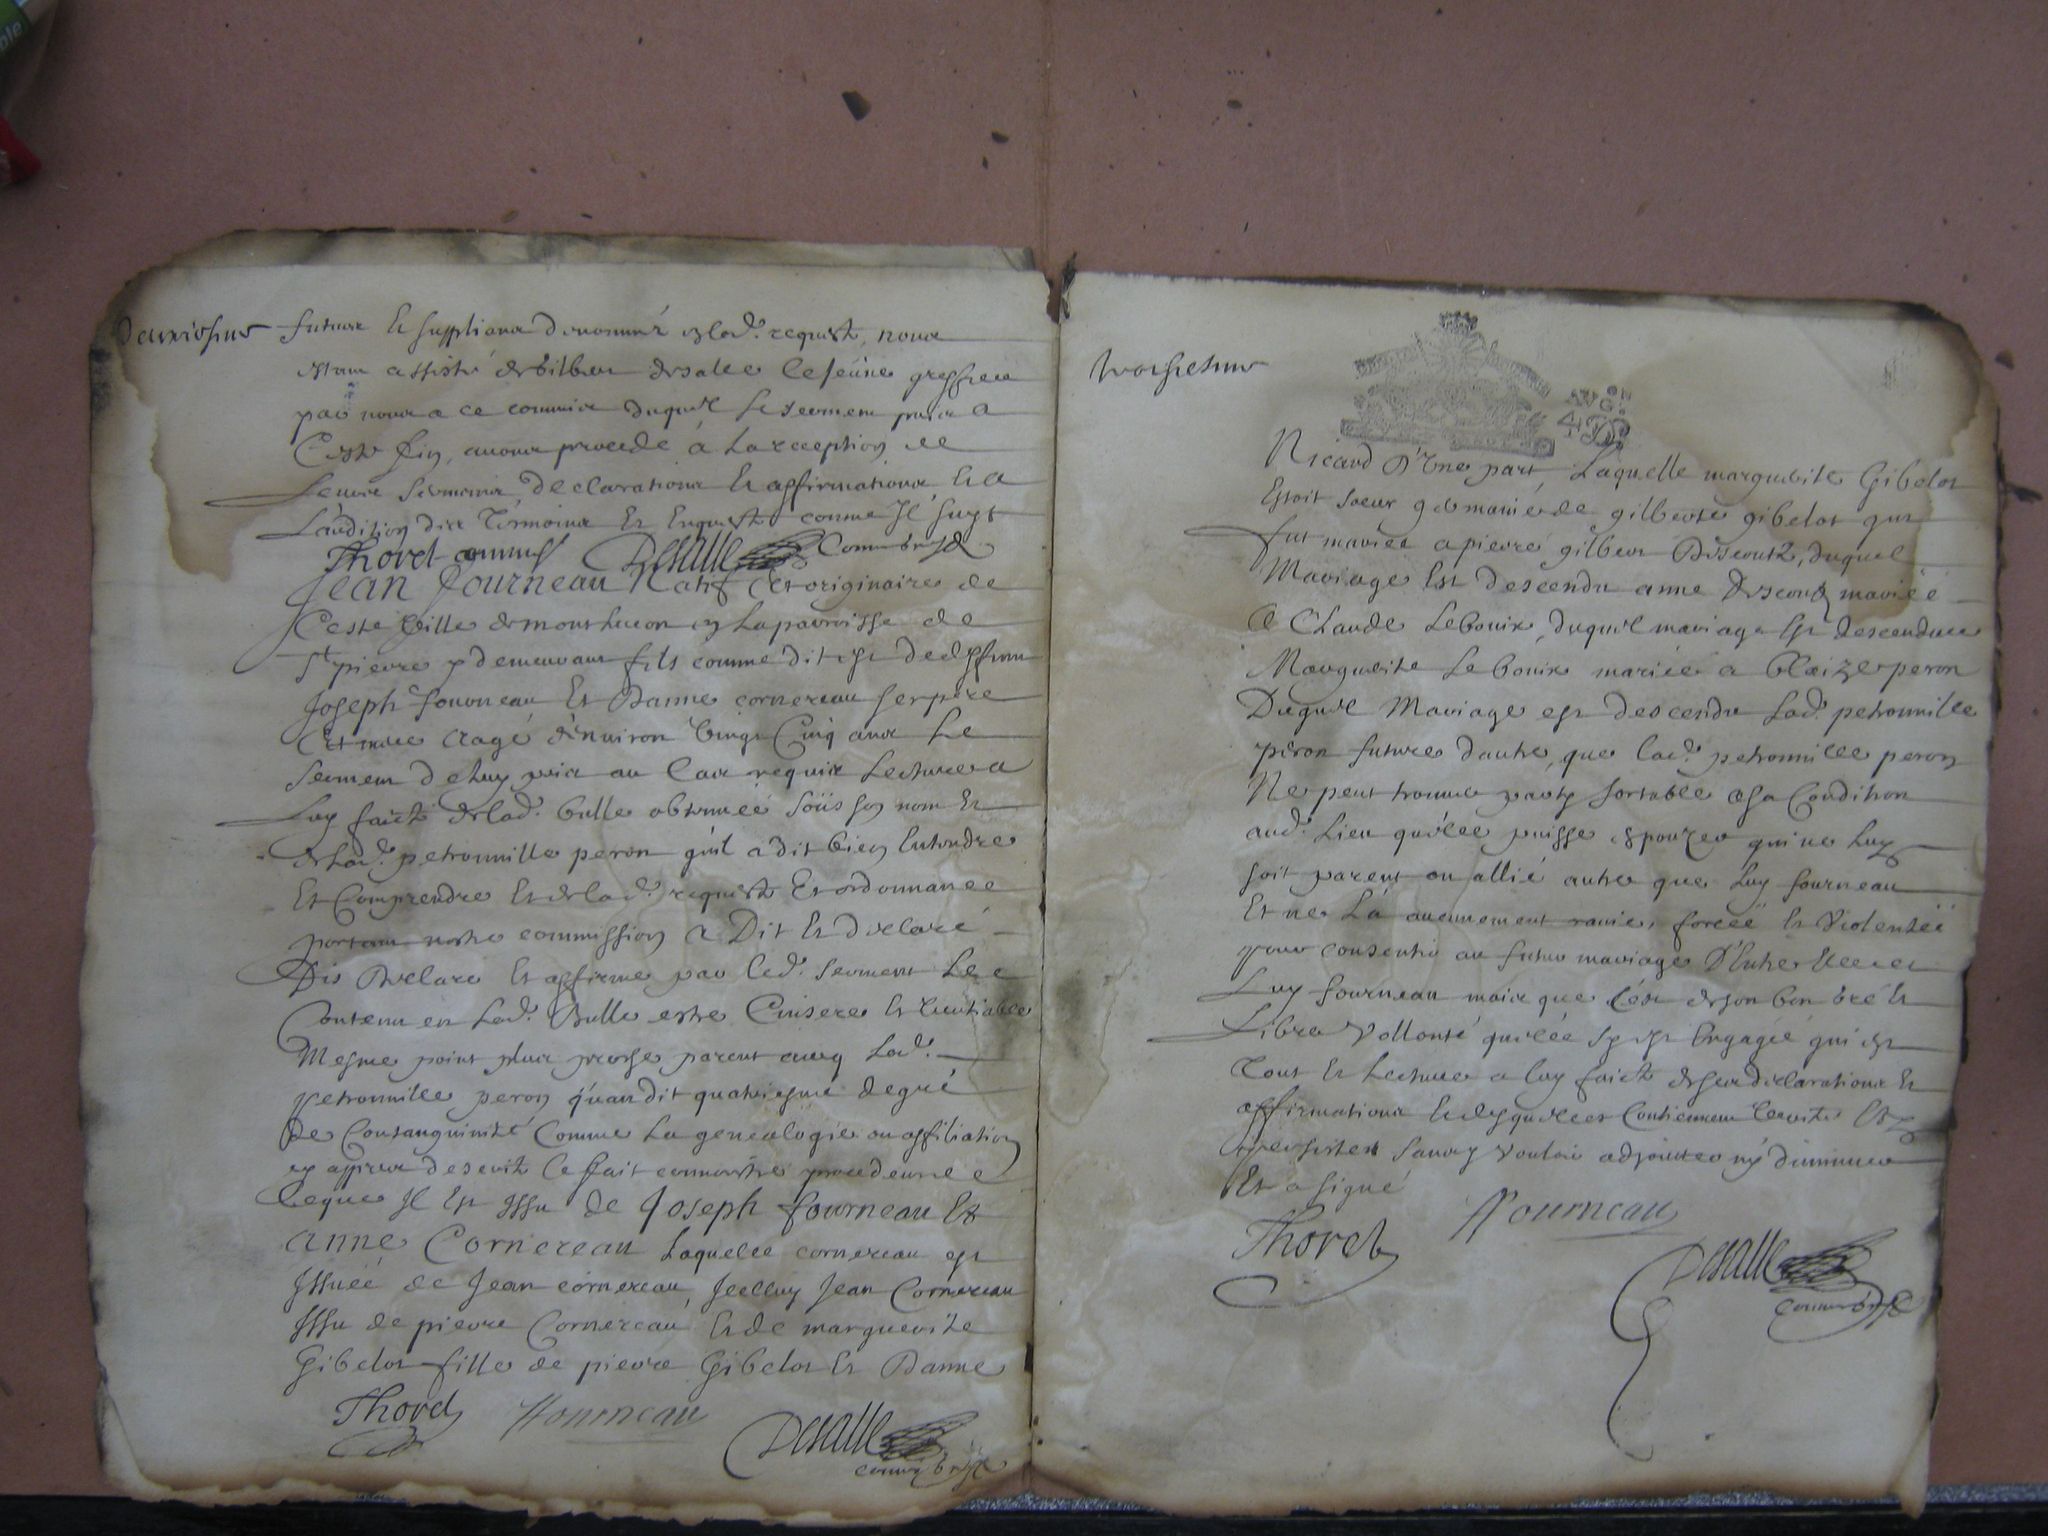 deuxiesme
futurs et suppliants denommés en lad. requeste, nous
estans assisté de Gilbert desalle le jeune greffier
par nous a ce commis duquel le serment pris a
Ceste fin, avons procede à la reception de
Leurs serments, declarations et affirmations et a
L'audition des Tesmoins Et Enqueste comme Il suyt
Thorel commis Desalle Commis greffier
Jean fourneau Natif Et originaire de
Ceste Ville de montlucon en La parroisse de
St pierre y demeurant fils comme dit est de deffunt
Joseph fourneau Et Danne cornereau ses pere
Et mere aagé d'environ Vingt Cinq ans Le
serment de Luy pris au Cas requis Lecture a
Luy faict de lad. bulle obtenuée soüs son nom Et
de Lad. petronnille peron qu'il a dit bien Entendre
Et Comprendre Et de lad. requeste Et ordonnance
portant nostre commission a Dit Et declaré
Dis declare Et affirme par led. serment Le
Contenu en Lad. Bulle estre sincere et veritable
Mesme point plus proche parent avecq Lad.
petronnille peron qu'audit quatriesme degré
De Consanguinité Comme La genealogie ou affiliation
cy appres descrite le fait connoistre
Il Est Issu de Joseph fourneau Et
Anne Cornereau Laquelle cornereau est
Issuéé de Jean cornereau, Icelluy Jean Cornereau
Issu de pierre Cornereau Et de marguerite
Gibelot fille de pierre Gibelot Et Danne
Thorel fourneau Desalle
commis greffier
troisiesme
Ricard D'Une part, Laquelle marguerite Gibelot
Estoit soeur germaine de gilberte gibelot qui
fut mariée a pierre gilbert Descoutz, duquel
Mariage Est descendu anne Descoutz mariéé
A Claude Lebouix, duquel mariage Est descendue
Marguerite Lebouix mariée a blaize peron
Duquel Mariage est descendu Lad. petronnille
peron future dautre, que lad. petronnille peron
Ne peut trouver party sortable a sa Condition
aud. Lieu qu'elle puisse espouzer qui ne Luy
soit parent ou allié autre que Luy fourneau
Et ne L'a aucunement ravie, forcéé Et Violentéé
pour consentir au futur mariage D'Entre Elle et
Luy fourneau mais que C'est de son bon gré Et
Libre Vollonté qu'elle s'y est Engagée qui est
Tout Et Lecture a luy faict de ses declarations Et
affirmations Et desquelles Contiennent Verité Et y
persister sans y vouloir adjouter ny diminuer
Et a signé
Thorel fourneau
Desalle
commis greffier